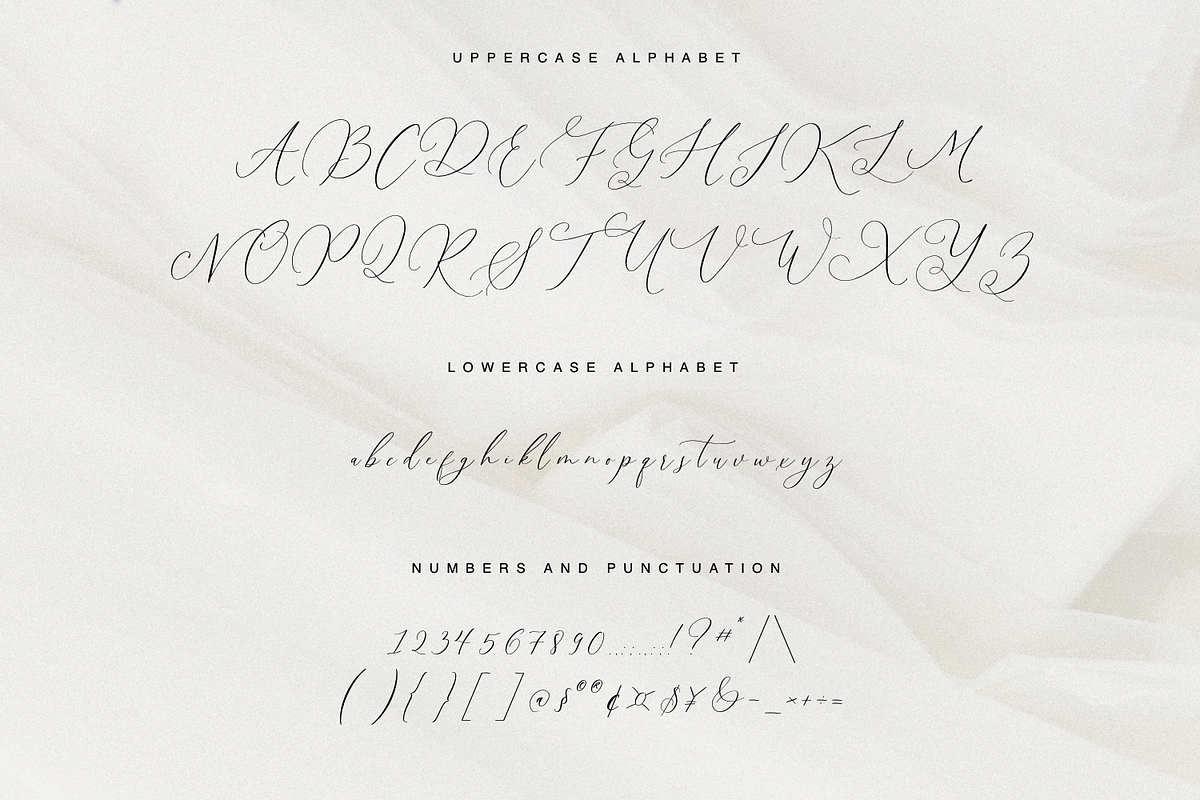 UPPERCASE ALPHABET
ABCDEFGHIJKLM
NOPQRSTUVWXYZ
LOWERCASE ALPHABET
abcdefghiklmnopqrstuvwxyz
NUMBERS AND PUNCTUATION
1234567890 !?#*/\
(){}[]@§©®¢¤$¥&-_×+÷=